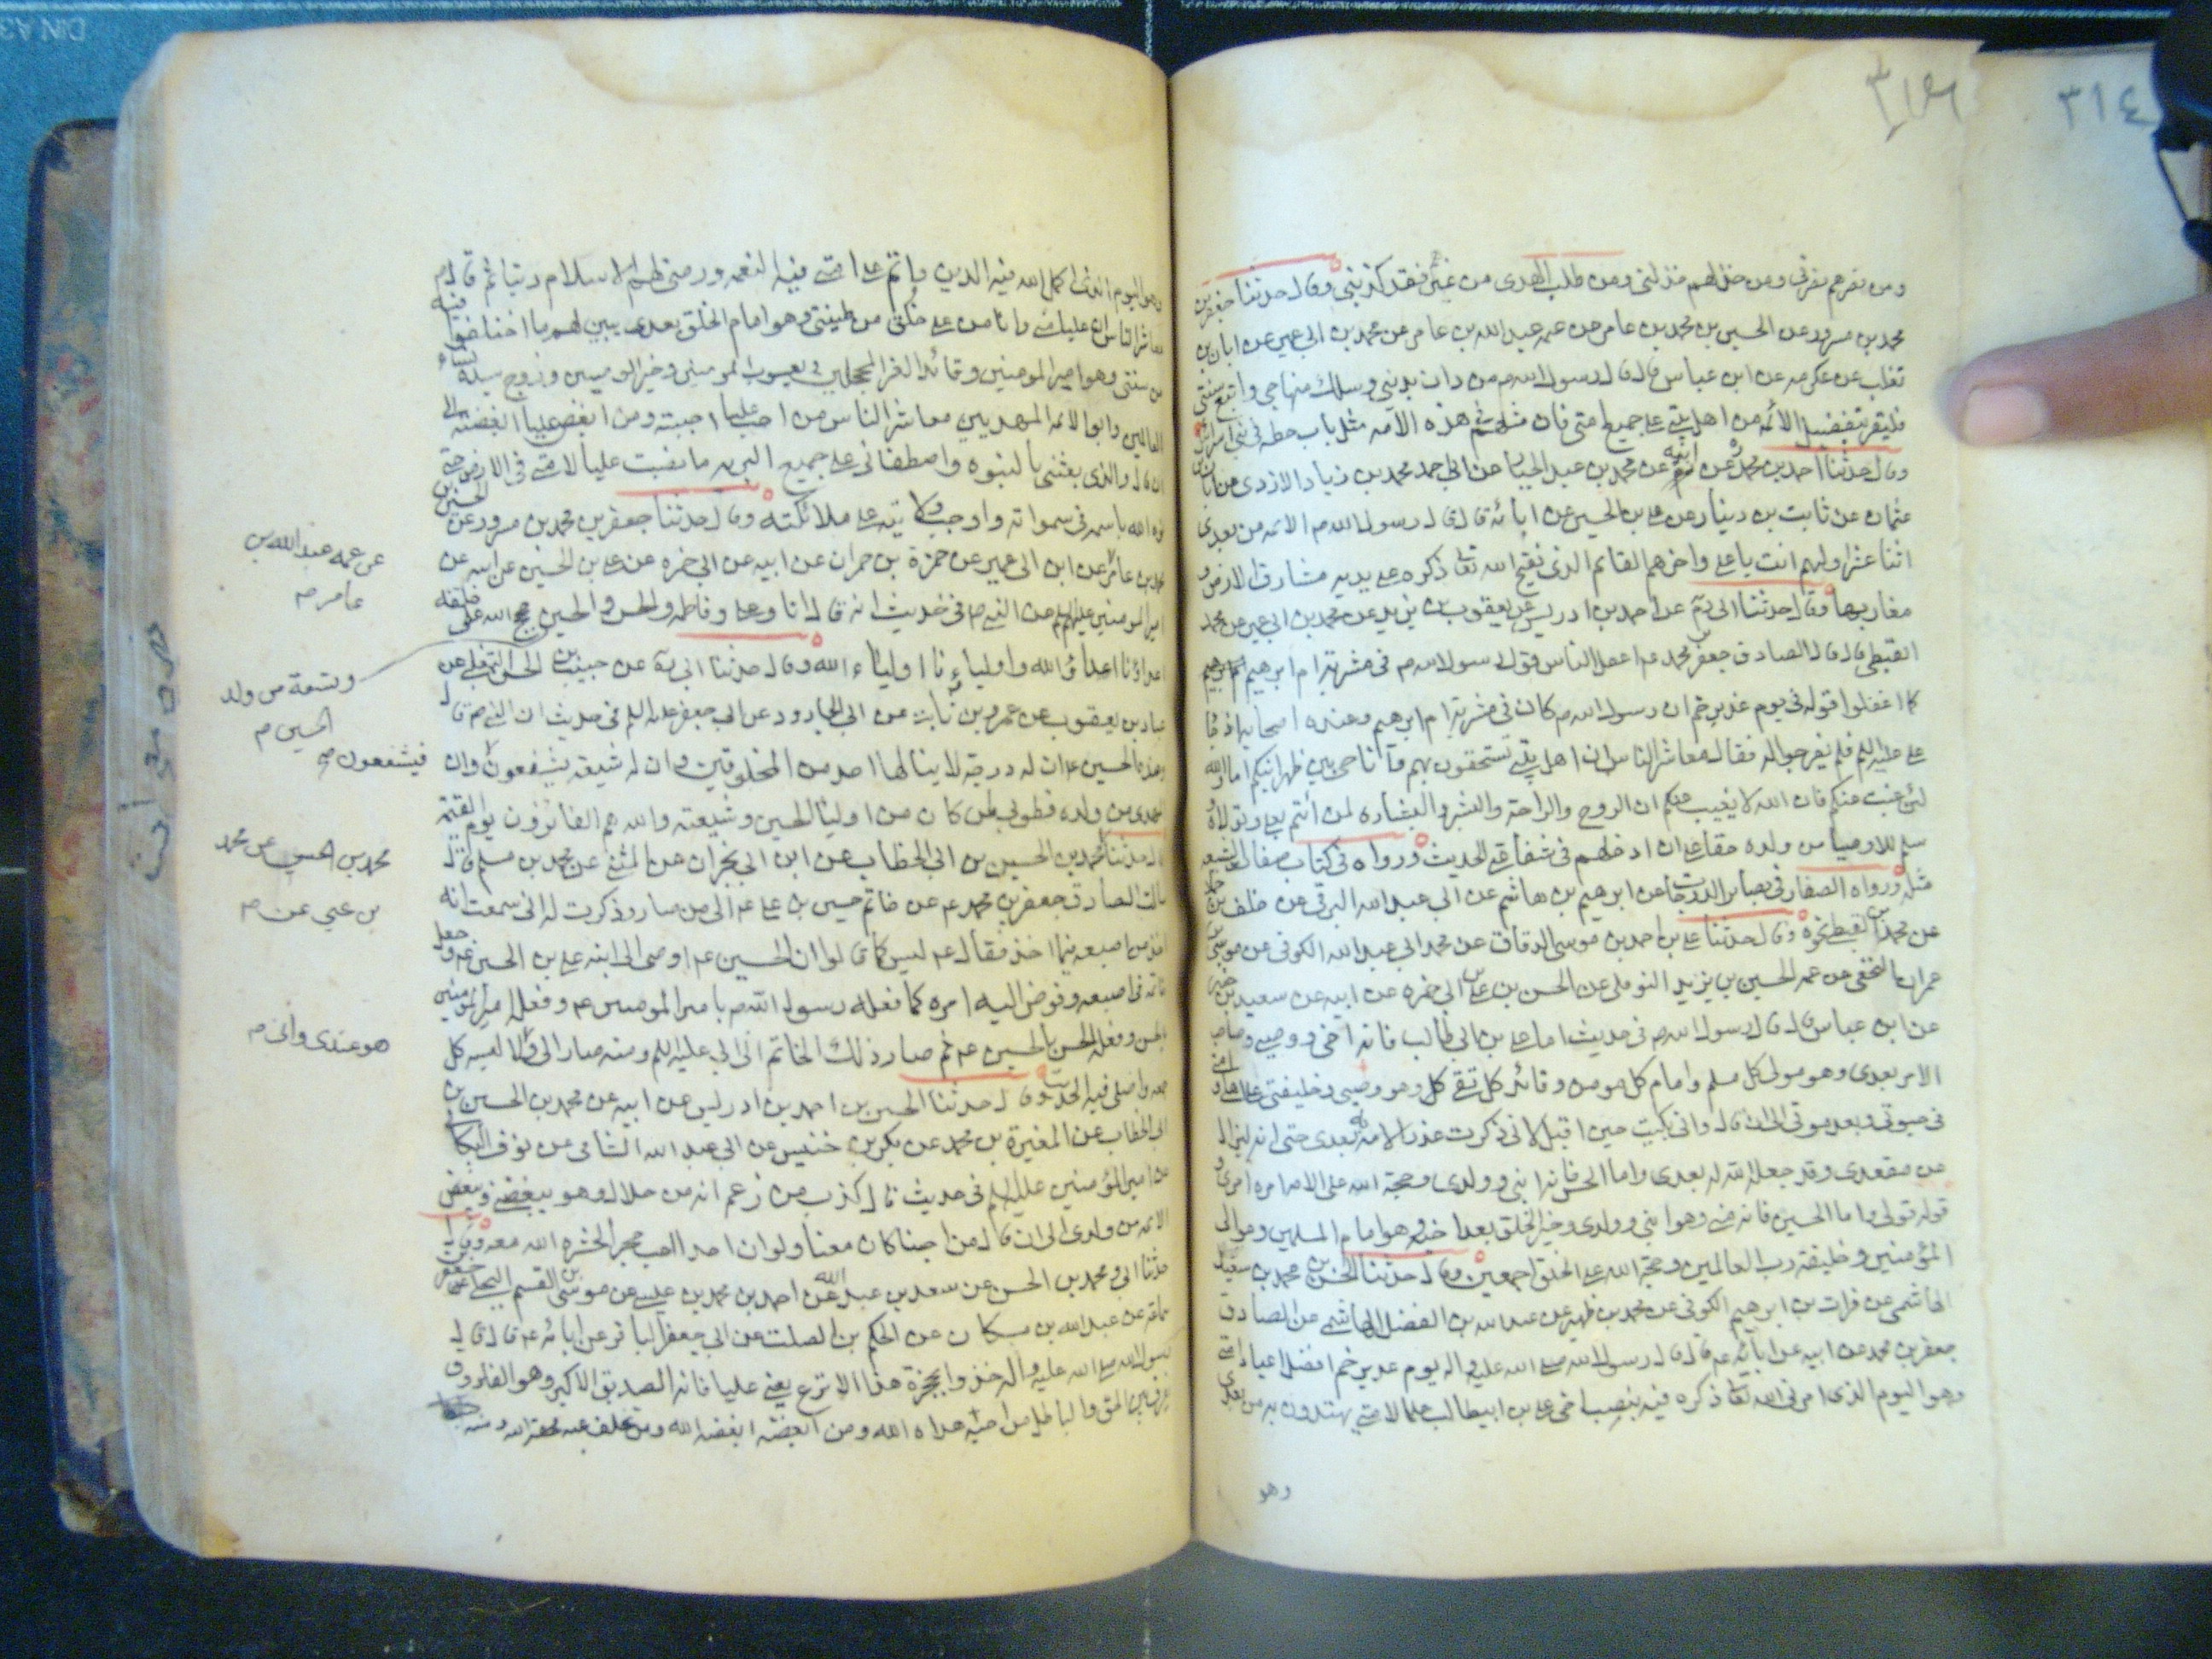 ٣١٤
ومن نصرهم نصرني ومن خذلهم خذلني ومن طلب الهدى من غيرهم فقد كذبني وقال حدثنا جعفر بن
محمد بن مسرور عن الحسين بن محمد بن عامر عن عمه عبد الله بن عامر عن محمد بن ابي عمير عن ابان بن
تغلب عن عكرمه عن ابن عباس قال قال رسول الله ص من دان بديني وسلك منهاجي واتبع سنتي
فليقر بتفضيل الائمه من اهل بيتي على جميع امتي فان مثلهم في هذه الامه مثل باب حطه في بني اسرائيل
وقال حدثنا احمد بن محمد عن ابيه عن محمد بن عبد الجبار عن ابي احمد محمد بن زياد الازدي عن ابان بن
عثمان عن ثابت بن دينار عن علي بن الحسين عن ابائه قال قال رسول الله ص الائمه من بعدي
اثنا عشر اولهم انت يا علي واخرهم القائم الذي يفتح الله تعا ذكره على يديه مشارق الارض و
مغاربها وقال حدثنا ابي عن احمد بن ادريس عن يعقوب بن يزيد عن محمد بن ابي عمير عن محمد
القبطي قال قال الصادق جعفر بن محمد ع اغفل الناس قول رسول الله ص في مشربة ام ابرهيم
كما اغفلوا قوله في يوم غدير خم ان رسول الله ص كان في مشربة ام ابرهيم وعنده اصحابه اذ جا
علي عليه السلم فلم يفرجوا له فقال معاشر الناس ان اهل بيتي تستحقون بهم وانا حي بين ظهرانيكم اما والله
لئن غبت عنكم فان الله لا يغيب عنكم ان الروح والراحة والبشر والبشاره لمن ائتم بعلي وتولاه
سلم للاوصيا من ولده حقا علي ان ادخلهم في شفاعتي الحديث ورواه في كتاب صفات الشيعه
مثله ورواه الصفار في بصائر الدرجات عن ابرهيم بن هاشم عن ابي عبد الله البرقي عن خلف بن حماد
عن محمد بن القبطي نحوه وقال حدثنا علي بن احمد بن موسى الدقاق عن محمد ابي عبد الله الكوفي عن موسى بن
عمران النخعي عن عمه الحسين بن يزيد النوفلي عن الحسن بن علي بن ابي حمزه عن ابيه عن سعيد بن جبير
عن ابن عباس قال قال رسول الله ص في حديث اما علي بن ابي طالب فانه اخي ووصيي وصاحب
الامر بعدي وهو مولى كل مسلم وامام كل مومن وقائد كل تقي وهو وصيي وخليفتي على اهلي وامتي
في حيوتي وبعد موتي الى ان قال واني بكيت حين اقبل لاني ذكرت غدر الامة به بعدي حتى انه ليزال
من مقعدي وقد جعله الله له بعدي واما الحسن فانه ابني وولدي وحجة الله على الامه امره امري و
قوله قولي واما الحسين فانه مني وهو ابني وولدي وخير الخلق بعد اخيه وهو امام المسلمين ومولى
المؤمنين وخليفة رب العالمين وحجة الله على الخلق اجمعين وقال حدثنا الحسن بن محمد بن سعيد
الهاشمي عن فرات بن ابرهيم الكوفي عن محمد بن ظهير عن عبد الله بن الفضل الهاشمي عن الصادق
جعفر بن محمد عن ابيه عن ابائه ع قال قال رسول الله صلى الله عليه واله يوم غدير خم افضل اعياد امتي
وهو اليوم الذي امرني الله تعا ذكره فيه بنصب اخي علي بن ابيطالب علما لامتي يهتدون به من بعدي
وهو
وهو اليوم الذي اكمل الله فيه الدين واتم على امتي فيه النعمه ورضي لهم الاسلام دينا ثم قال
معاشر الناس ان عليا مني وانا من علي خلق من طينتي وهو امام الخلق بعدي يبين لهم ما اختلفوا فيه
من سنتي وهو امير المومنين وقائد الغر المحجلين ويعسوب المومنين وخير الوصيين وزوج سيدة نساء
العالمين وابو الائمه المهديين معاشر الناس من احب عليا احببته ومن ابغض عليا ابغضته الى
ان قال والذي بعثني بالنبوه واصطفاني على جميع البريه ما نصبت عليا لامتي في الارض حتى
نوه الله باسمه في سمواته واوجب ولايته على ملائكته وقال حدثنا جعفر بن محمد بن مسرور عن الحسين بن
محمد بن عامر عن ابن ابي عمير عن حمزة بن حمران عن ابيه عن ابي حمزه عن علي بن الحسين عن ابيه عن
امير المومنين عليهم السلم عن النبي ص في حديث انه قال انا وعلي وفاطمه والحسن والحسين حجج الله على خلقه
اعداؤنا اعداؤ الله واولياءنا اولياء الله وقال حدثنا ابي عن حبيب بن الحسين التغلبي عن
عباد بن يعقوب عن عمرو بن ثابت عن ابي الجارود عن ابي جعفر عليه السلم في حديث ان النبي ص قال
وهذا الحسين ع ان له درجة لا ينالها احد من المخلوقين وان له شيعه يشفعون وان
المهدي من ولده فطوبى لمن كان من اوليا الحسين وشيعته والله هم الفائزون يوم القيمة
قال حدثنا محمد بن الحسين بن ابي الخطاب عن ابن ابي نجران عن المثنى عن محمد بن مسلم قال
سالت الصادق جعفر بن محمد ع عن خاتم حسين بن علي ع الى من صار وذكرت له اني سمعت انه
اخذ من اصبعه فيما اخذ فقال ع ليس كما قالوا ان الحسين ع اوصى الى ابنه علي بن الحسين ع وجعل
خاتمه في اصبعه وفوض اليه امره كما فعله رسول الله ص بامير المومنين ع وفعله امير المؤمنين
بالحسن وفعله الحسن بالحسين ع ثم صار ذلك الخاتم الى ابي عليه السلم ومنه صار الي والا لبسه كل
جمعه واصلي فيه الحديث وقال حدثنا الحسين بن احمد بن ادريس عن ابيه عن محمد بن الحسين بن
ابي الخطاب عن المغيرة بن محمد عن بكر بن خنيس عن ابي عبد الله الشامي عن نوف البكالي
عن امير المؤمنين عليه السلم في حديث قال كذب من زعم انه من حلال وهو يبغضني ويبغض
الائمه من ولدي الى ان قال من احبنا كان معنا ولو ان احدا احب حجر الحشره الله معه وقال
حدثنا ابي ومحمد بن الحسن عن سعد بن عبد الله عن احمد بن محمد بن عيسى عن موسى بن القسم البجلي عن جعفر بن
سماعه عن عبد الله بن مسكان عن الحكم بن الصلت عن ابي جعفر الباقر عن ابائه ع قال قال
رسول الله صلى الله عليه واله خذوا بحجزة هذا الانزع يعني عليا فانه الصديق الاكبر وهو الفاروق
يفرق بين الحق والباطل من احبه هداه الله ومن ابغضه ابغضه الله ومن تخلف عنه محقه الله ومنه
عن عمه عبد الله بن
عامر ص
وتسعة من ولد
الحسين م
فيشفعون ص
محمد بن الحسين عن محمد
بن عيسى عن م
هو عندي واني م